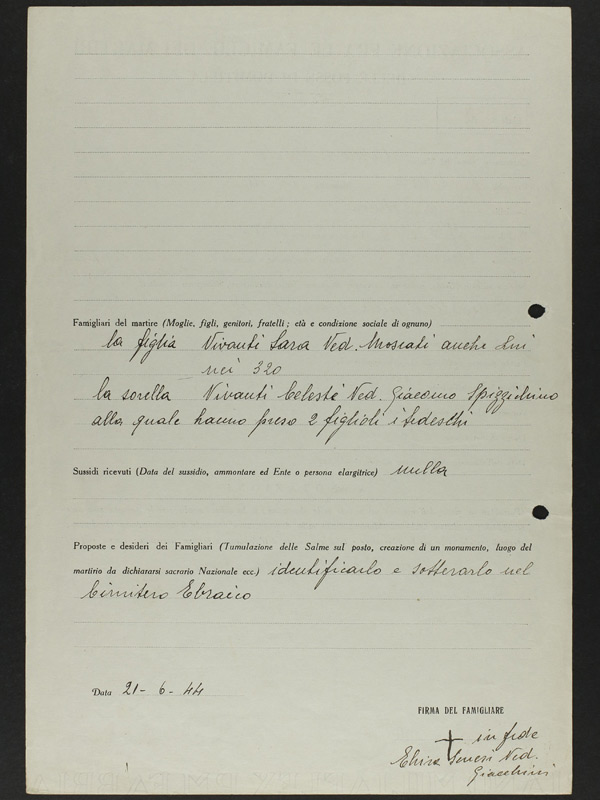 Famigliari del martire (Moglie, figli, genitori, fratelli; età e condizione sociale di ognuno)
la figlia Vivanti Sara Ved. Moscati anche Lui
nei 320
la sorella Vivanti Celeste Ved. Giacomo Spizzichino
alla quale hanno preso 2 figlioli i tedeschi
Sussidi ricevuti (Data del sussidio, ammontare ed Ente o persona elargitrice) nulla
Proposte e desideri dei Famigliari (Tumulazione delle Salme sul posto, creazione di un monumento, luogo del
martirio da dichiararsi sacrario Nazionale ecc.) identificarlo e sotterarlo nel
Cimitero Ebraico
Data 21-6-44
FIRMA DEL FAMIGLIARE
in fede
Ved.